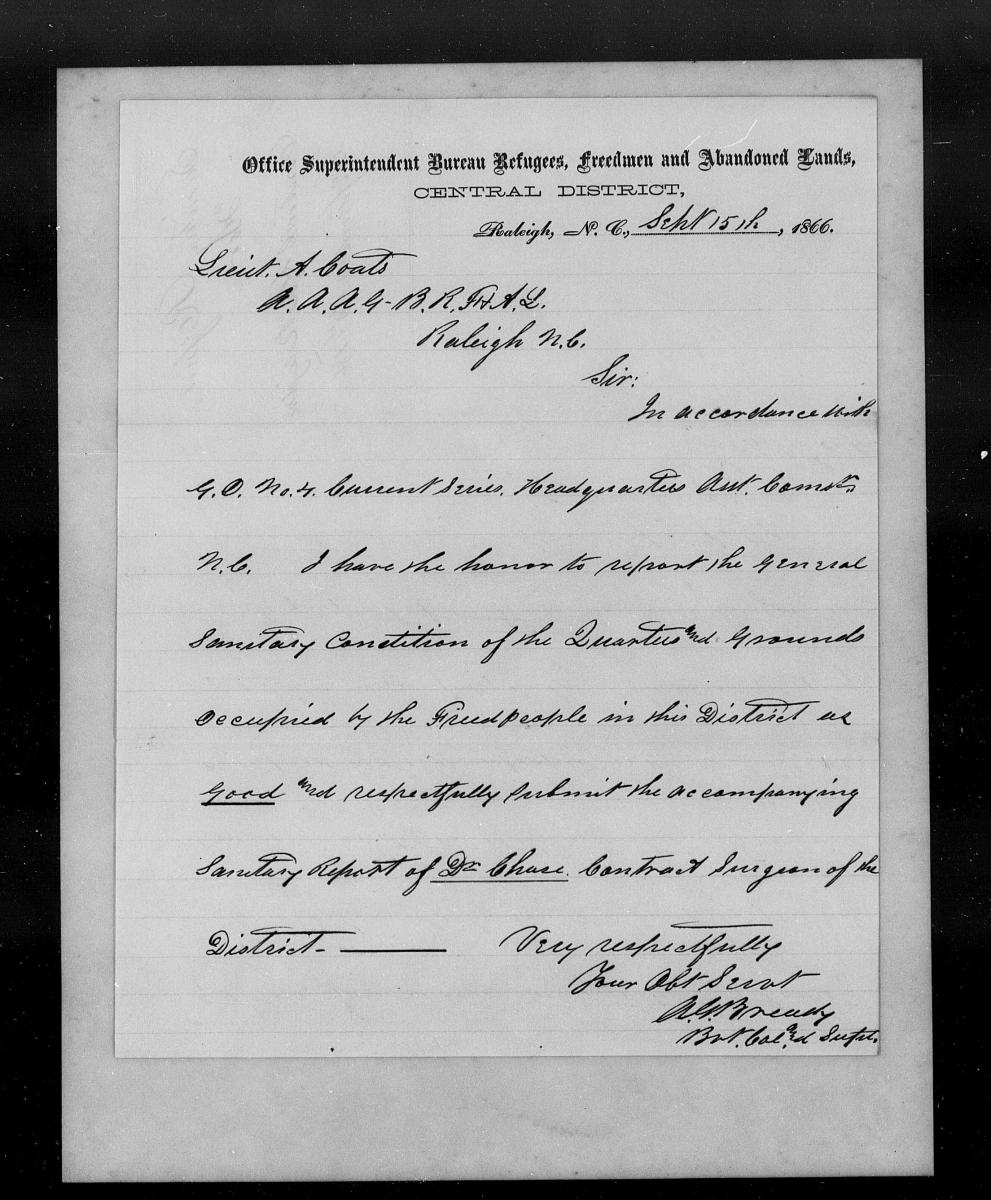 Office Superintendent Bureau Refugees, Freedmen and Abandoned Lands,
CENTRAL DISTRICT,
Raleigh, N. C., Sept 15th, 1866.
Lieut. A. Coats
A. A. A. G. B. R. F. & A. L.
Raleigh N.C.
Sir:
In accordance with
G. O. No. 4. Current Series. Headquarters Asst. Comsr.
N.C. I have the honor to report the General
Sanitary Condition of the Quarters and Grounds
occupied by the Freedpeople in this District as
Good and respectfully submit the accompanying
Sanitary Report of Dr Chase. Contract Surgeon of the
District.
Very respectfully
Your Obt Servt
A.G. Bready
Bvt. Col. and Supt.